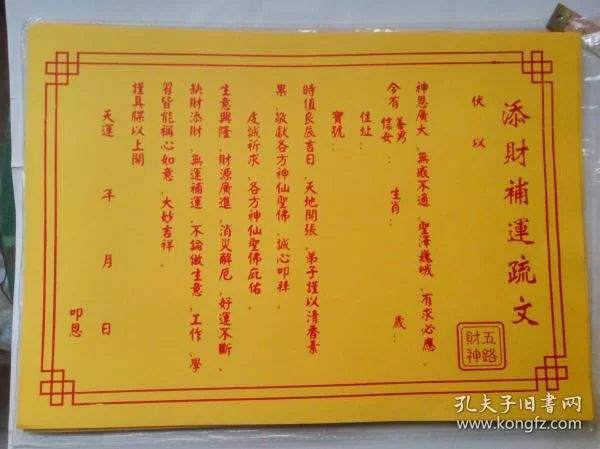 添財補運疏文
伏以
神恩廣大﹐無感不通﹐聖澤巍峨﹐有求必應。
今有 善男 信女 ： 生肖： 歲：
住址：
寶號：
時值良辰吉日﹐天地開張﹐弟子謹以清香素
果﹑敬獻各方神仙聖佛﹐誠心叩拜。
虔誠祈求﹐各方神仙聖佛庇佑。
生意興隆﹐財源廣進﹐消災解厄﹐好運不斷﹑
缺財添財﹑無運補運﹑不論做生意﹑工作﹑學
習皆能稱心如意﹐大妙吉祥。
謹具牒以上聞
天運 年 月 日
叩恩
五路
財神
孔夫子旧書网
www.kongfz.com